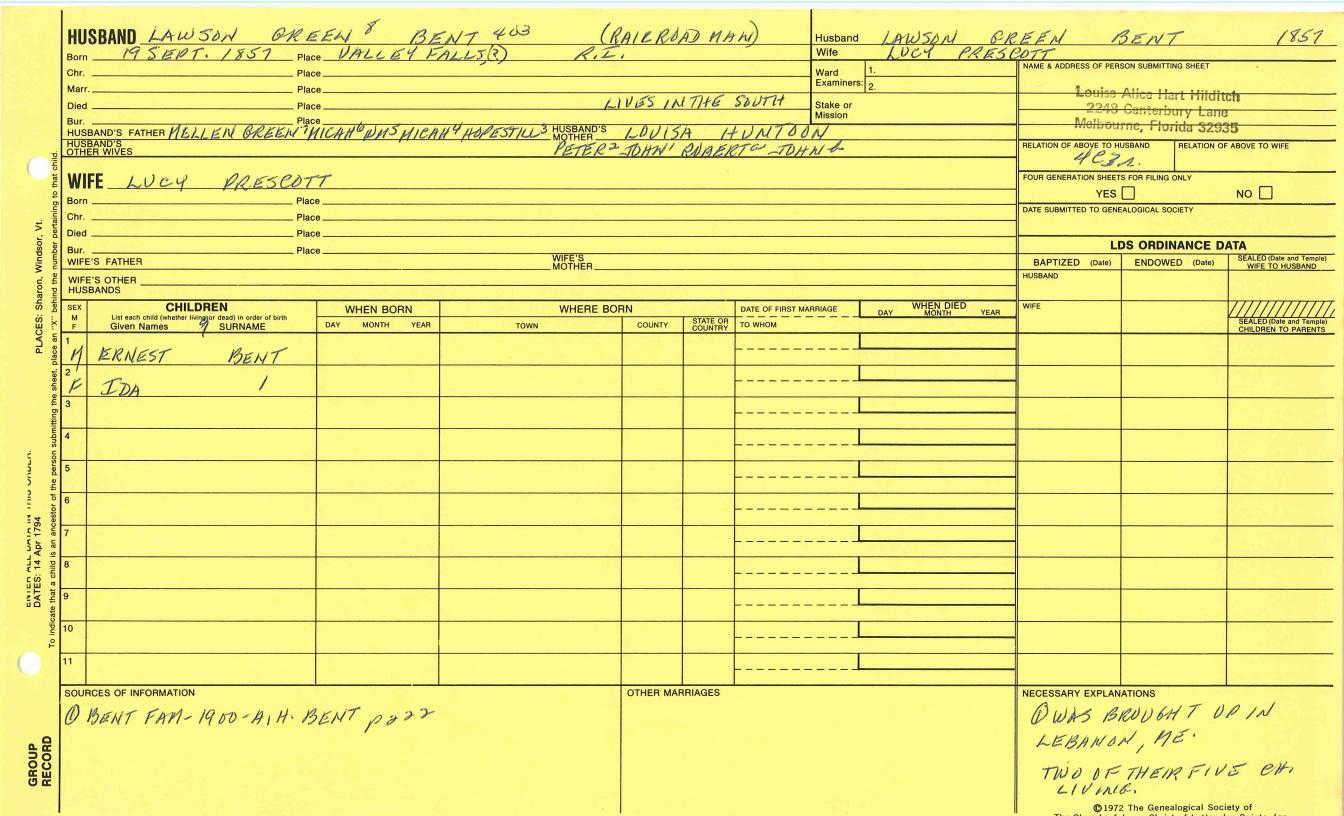 HUSBAND LAWSON GREEN 8 BENT 403 (RAILROAD MAN)
Born 19 SEPT. 1857 Place VALLEY FALLS(?) R.I.
Chr. Place
Marr. Place
Died Place LIVES IN THE SOUTH
Bur. Place
HUSBAND'S FATHER MELLEN GREEN 7 MICAH 6 WM 5 MICAH 4 HOPESTILL 3 HUSBAND'S MOTHER LOUISA HUNTOON
HUSBAND'S OTHER WIVES PETER 2 JOHN 1 ROBERT a JOHN b
Husband LAWSON GREEN BENT 1857
Wife LUCY PRESCOTT
Ward Examiners: 1.
2.
Stake or Mission
NAME & ADDRESS OF PERSON SUBMITTING SHEET
Louise Alice Hart Hilditch
2248 Canterbury Lane
Melbourne, Florida 32935
RELATION OF ABOVE TO HUSBAND RELATION OF ABOVE TO WIFE
4C3R.
FOUR GENERATION SHEETS FOR FILING ONLY
YES NO
DATE SUBMITTED TO GENEALOGICAL SOCIETY
WIFE LUCY PRESCOTT
Born Place
Chr. Place
Died Place
Bur. Place
WIFE'S FATHER WIFE'S MOTHER
WIFE'S OTHER HUSBANDS
LDS ORDINANCE DATA
BAPTIZED (Date) ENDOWED (Date) SEALED (Date and Temple) WIFE TO HUSBAND
HUSBAND
WIFE
SEALED (Date and Temple) CHILDREN TO PARENTS
SEX M F CHILDREN WHEN BORN WHERE BORN DATE OF FIRST MARRIAGE WHEN DIED
List each child (whether living or dead) in order of birth
Given Names 9 SURNAME DAY MONTH YEAR TOWN COUNTY STATE OR COUNTRY TO WHOM DAY MONTH YEAR
1 M ERNEST BENT
2 F IDA
3
4
5
6
7
8
9
10
11
SOURCES OF INFORMATION
① BENT FAM-1900-A.H. BENT p 222
OTHER MARRIAGES
NECESSARY EXPLANATIONS
① WAS BROUGHT UP IN
LEBANON, ME.
TWO OF THEIR FIVE CH.
LIVING.
©1972 The Genealogical Society of
PLACES: Sharon, Windsor, Vt.
ENTER ALL DATA IN THIS ORDER:
DATES: 14 Apr 1794
To indicate that a child is an ancestor of the person submitting the sheet, place an "X" behind the number pertaining to that child.
GROUP RECORD